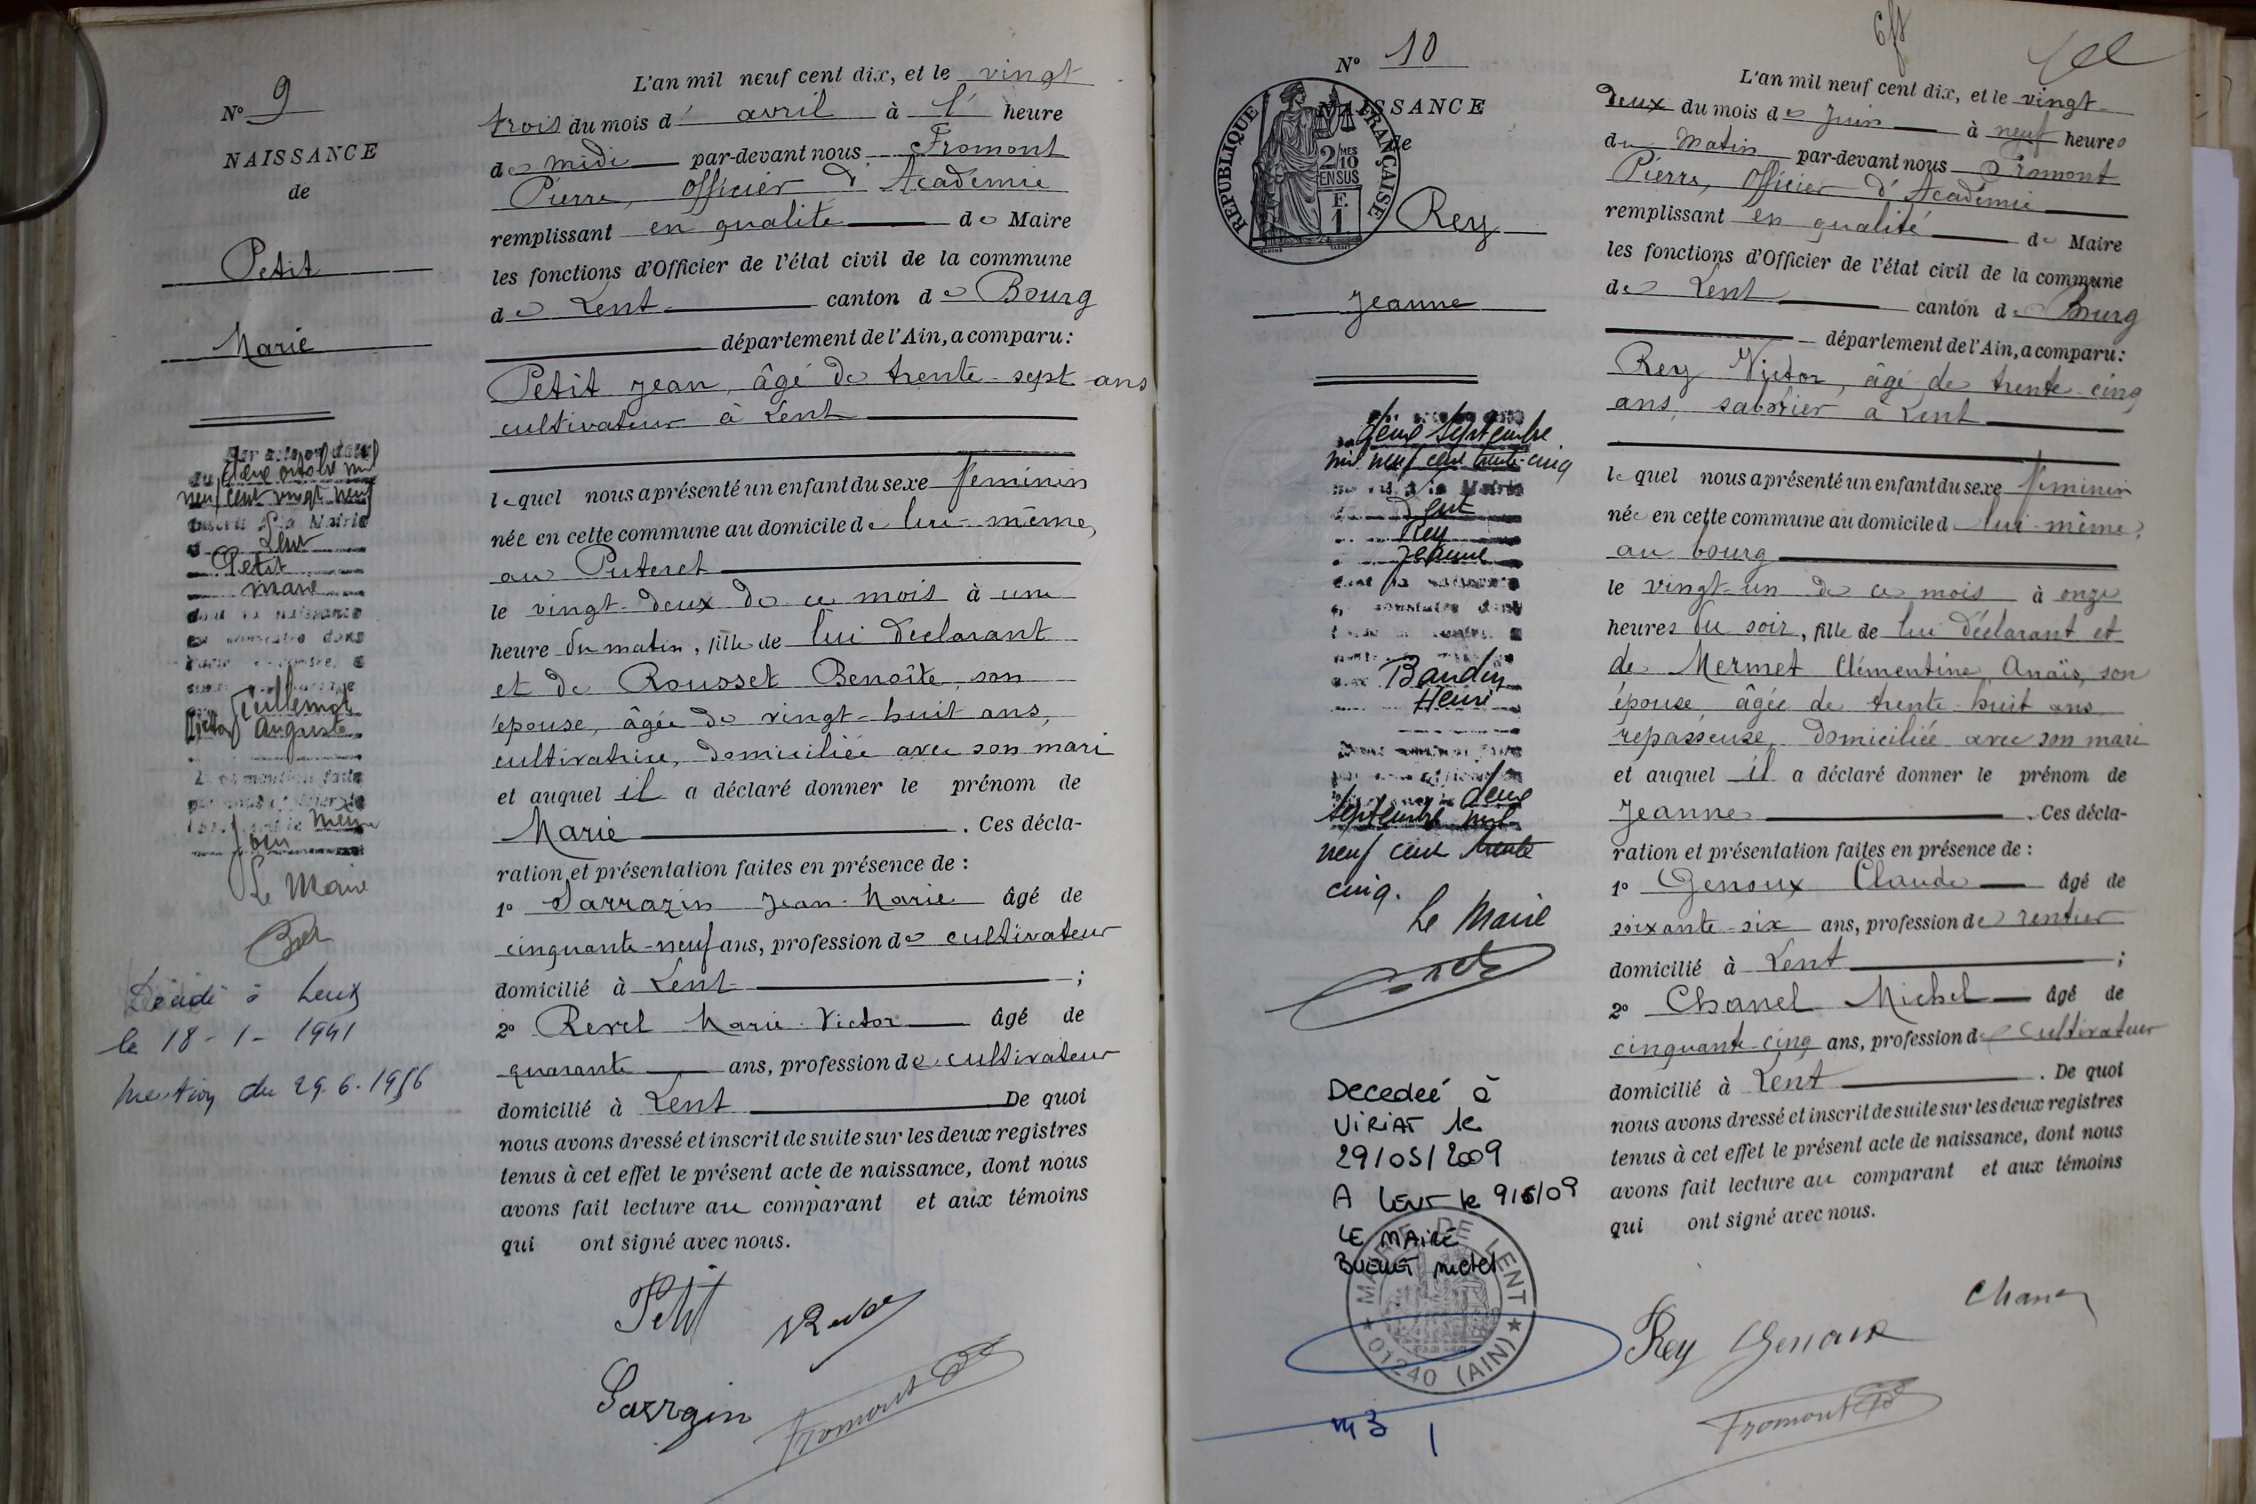 N° 9
NAISSANCE
de
Petit
Marie
L'an mil neuf cent dix, et le vingt
trois du mois d' avril à l' heure
de midi par-devant nous Fromont
Pierre, Officier d'Académie
remplissant en qualité de Maire
les fonctions d'Officier de l'état civil de la commune
de Lent canton de Bourg
département de l'Ain, a comparu :
Petit Jean, âgé de trente-sept ans
cultivateur à Lent
lequel nous a présenté un enfant du sexe féminin
née en cette commune au domicile de lui-même,
au Puteret
le vingt-deux de ce mois à une
heure du matin, fille de lui déclarant
et de Rousset Benoîte, son
épouse, âgée de vingt-huit ans,
cultivatrice, domiciliée avec son mari
et auquel il a déclaré donner le prénom de
Marie . Ces décla-
ration et présentation faites en présence de :
1° Sarrazin Jean-Marie âgé de
cinquante-neuf ans, profession de cultivateur
domicilié à Lent ;
2° Revel Marie-Victor âgé de
quarante ans, profession de cultivateur
domicilié à Lent De quoi
nous avons dressé et inscrit de suite sur les deux registres
tenus à cet effet le présent acte de naissance, dont nous
avons fait lecture au comparant et aux témoins
qui ont signé avec nous.
Petit
Sarrazin
Fromont
octobre mil
neuf cent vingt neuf
Mairie
Petit
Marie
naissance
Auguste
mention faite
même
jour
Le Maire
Décédé à
le 18-1-1941
mention du 29.6.1956
N° 10
NAISSANCE
de
RÉPUBLIQUE FRANÇAISE
2/10 MES
EN SUS
F.
1
Rey
Jeanne
L'an mil neuf cent dix, et le vingt-
deux du mois de Juin à neuf heures
du matin par-devant nous Fromont
Pierre, Officier d'Académie
remplissant en qualité de Maire
les fonctions d'Officier de l'état civil de la commune
de Lent canton de Bourg
département de l'Ain, a comparu :
Rey Victor, âgé de trente-cinq
ans, sabotier à Lent
lequel nous a présenté un enfant du sexe féminin
née en cette commune au domicile d lui-même,
au bourg
le vingt-un de ce mois à onze
heures du soir, fille de lui déclarant et
de Mermet Clémentine Anaïs, son
épouse, âgée de trente-huit ans
repasseuse, domiciliée avec son mari
et auquel il a déclaré donner le prénom de
Jeanne . Ces décla-
ration et présentation faites en présence de :
1° Genoux Claude âgé de
soixante-six ans, profession de rentier
domicilié à Lent ;
2° Chanel Michel âgé de
cinquante-cinq ans, profession de cultivateur
domicilié à Lent . De quoi
nous avons dressé et inscrit de suite sur les deux registres
tenus à cet effet le présent acte de naissance, dont nous
avons fait lecture au comparant et aux témoins
qui ont signé avec nous.
Chanel
Rey Genoux
Fromont
Septembre
mil neuf cent trente-cinq
Mairie
Lent
Rey
Jeanne
Baudin
Henri
deux
septembre mil
neuf cent trente
cinq.
Le Maire
Decedeé à
VIRIAT le
29/05/2009
A LENT le 9/6/09
LE MAIRE
MAIRIE DE LENT
01240 (AIN)